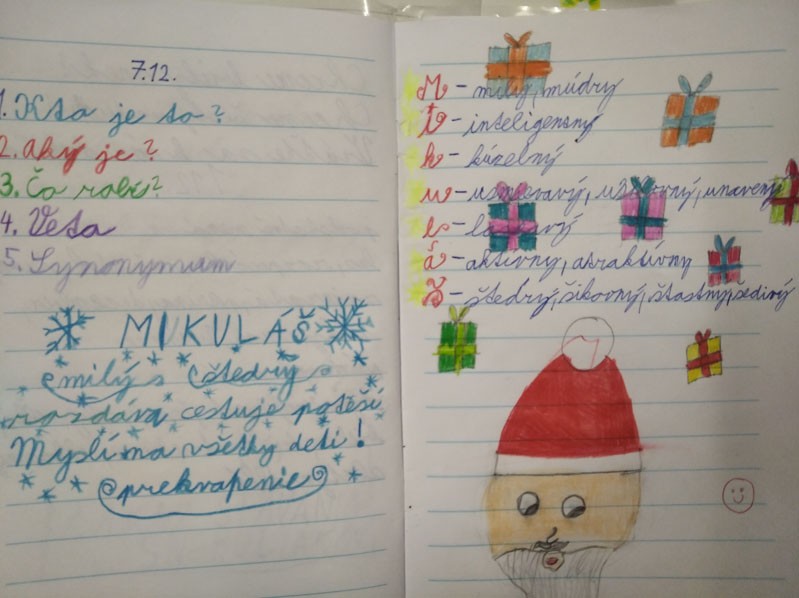 7.12.
1. Kto je to?
2. Aký je?
3. Čo robí?
4. Veta
5. Synonymum
MIKULÁŠ
milý štedrý
rozdáva cestuje poteší
Myslí na všetky deti!
prekvapenie
M - milý, múdry
i - inteligentný
k - kúzelný
u - usmievavý, unavený
l -
á - aktívny, atraktívny
Š - štedrý, šikovný, šťastný, šedivý